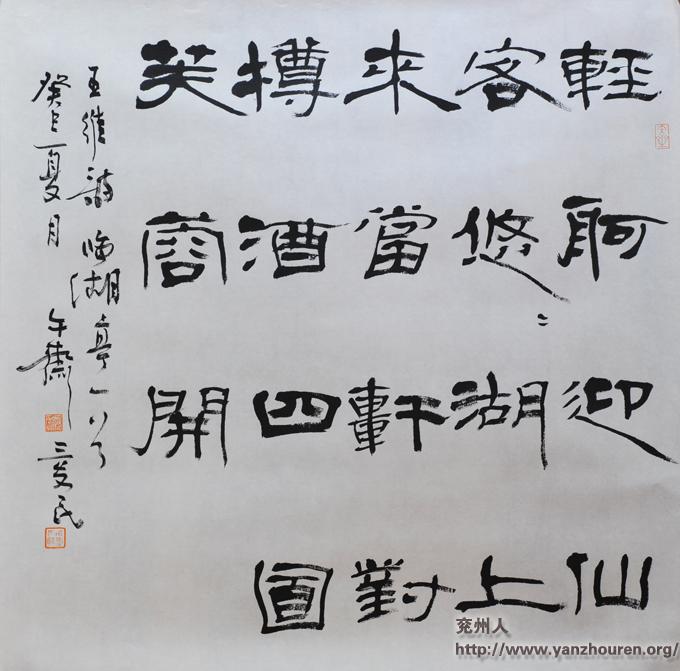 輕舸迎仙
客悠〻湖上
來當軒對
樽酒四面
芙蓉開
王維詩 臨湖亭一首
癸巳夏月 午齋
兖州人
http://www.yanzhouren.org/